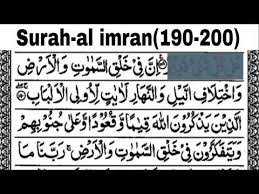 Surah-al imran(190-200)
اِنَّ فِيْ خَلْقِ السَّمٰوٰتِ وَالْاَرْضِ
وَاخْتِلَافِ الَّيْلِ وَالنَّهَارِ لَاٰيٰتٍ لِّاُولِي الْاَلْبَابِ
الَّذِيْنَ يَذْكُرُوْنَ اللّٰهَ قِيٰمًا وَّقُعُوْدًا وَّعَلٰى جُنُوْبِهِمْ
وَيَتَفَكَّرُوْنَ فِيْ خَلْقِ السَّمٰوٰتِ وَالْاَرْضِ ۚ رَبَّنَا مَا